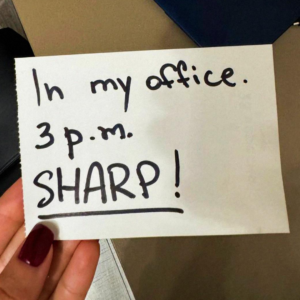 In my office.
3 p.m.
SHARP!